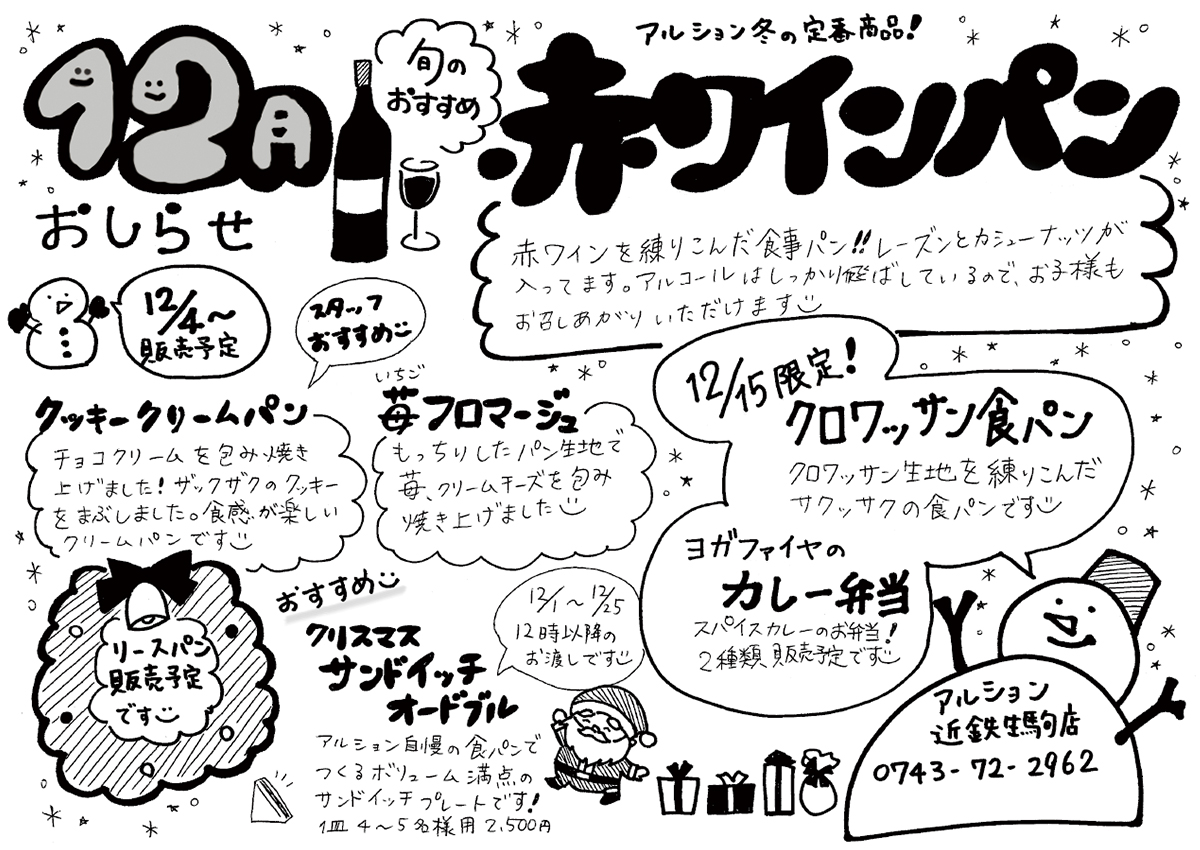 12月
おしらせ
旬の
おすすめ
アルション冬の定番商品!
赤ワインパン
赤ワインを練りこんだ食事パン!!レーズンとカシューナッツが
入ってます。アルコールはしっかり飛ばしているので、お子様も
お召しあがりいただけます
12/4〜
販売予定
スタッフ
おすすめ
クッキークリームパン
チョコクリームを包み焼き
上げました!ザックザクのクッキー
をまぶしました。食感が楽しい
クリームパンです
いちご
苺フロマージュ
もっちりしたパン生地で
苺、クリームチーズを包み
焼き上げました
12/15限定!
クロワッサン食パン
クロワッサン生地を練りこんだ
サクッサクの食パンです
ヨガファイヤの
カレー弁当
スパイスカレーのお弁当!
2種類販売予定です
リースパン
販売予定
です
おすすめ
クリスマス
サンドイッチ
オードブル
12/1〜12/25
12時以降の
お渡しです
アルション自慢の食パンで
つくるボリューム満点の
サンドイッチプレートです!
1皿4〜5名様用2,500円
アルション
近鉄生駒店
0743-72-2962